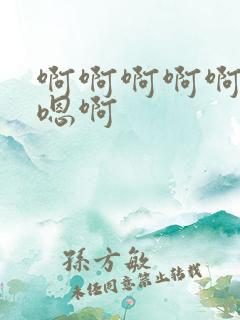 啊啊啊啊啊
嗯啊
孫方敏
未经同意禁止转载